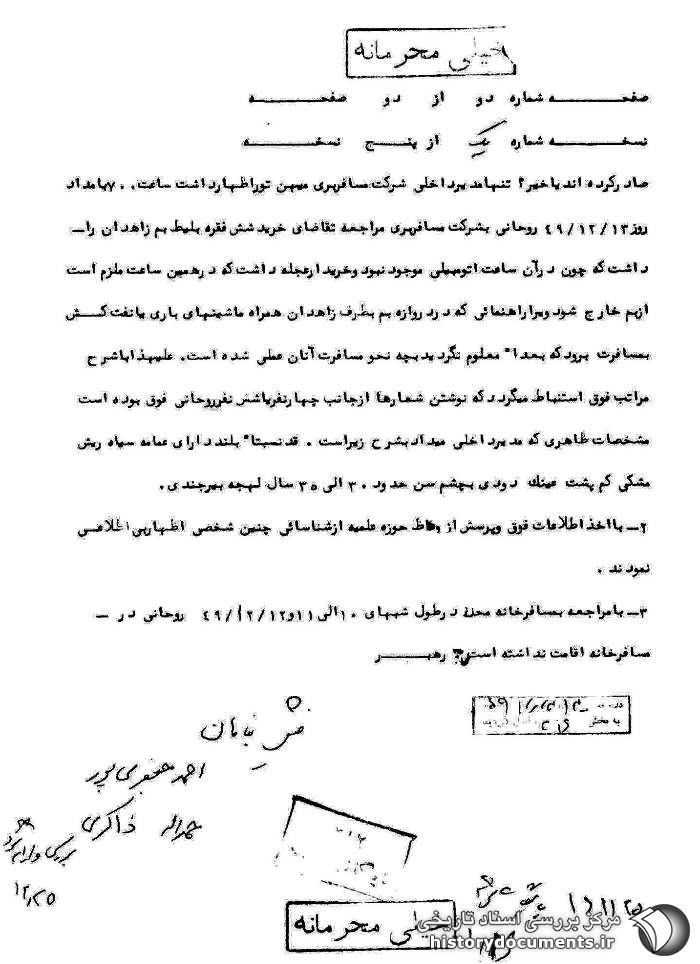 خیلی محرمانه
صفحـــه شماره دو از دو صفحـــه
نسخـــه شماره یک از پنـــج نسخـــه
صادرکرده اند یاخیر؟ تنها مدیرداخلی شرکت مسافربری میهن تور اظهارداشت ساعت ۷،۰۰ بامداد
روز ۴۹/۱۲/۱۳ روحانی بشرکت مسافربری مراجعه تقاضای خرید شش فقره بلیط بم زاهدان را ـ
داشت که چون درآن ساعت اتومبیلی موجود نبود وخریدار عجله داشت که درهمین ساعت ملزم است
ازبم خارج شود ویرا راهنمائی که دردروازه بم بطرف زاهدان همراه ماشینهای باری یانفت کـش
بمسافرت برود که بعدا" معلوم نگردید بچه نحو مسافرت آنان عملی شده است. علیهذا باشرح
مراتب فوق استنباط میگردد که نوشتن شعارها ازجانب چهارنفریاشش نفرروحانی فوق بوده است
مشخصات ظاهری که مدیرداخلی میداد بشرح زیراست . قد نسبتا" بلند دارای عمامه سیاه ریش
مشکی کم پشت عینک دودی بچشم سن حدود ۳۰ الی ۳۵ سال لهجه بیرجندی.
۲ـ بااخذ اطلاعات فوق وپرسش از وعاظ حوزه علمیه ازشناسائی چنین شخصی اظهاربی اطلاعـی
نمودند .
۳ـ بامراجعه بمسافرخانه محله درطول شبهای ۱۰ الی ۱۱ و ۴۹/۱۲/۱۲ روحانی در ـ
مسافرخانه اقامت نداشته است. رهبـــر
احمد جعفری پور
ذاکری
۱۲/۲۵
خیلی محرمانه
مرکز بررسی اسناد تاریخی
historydocuments.ir